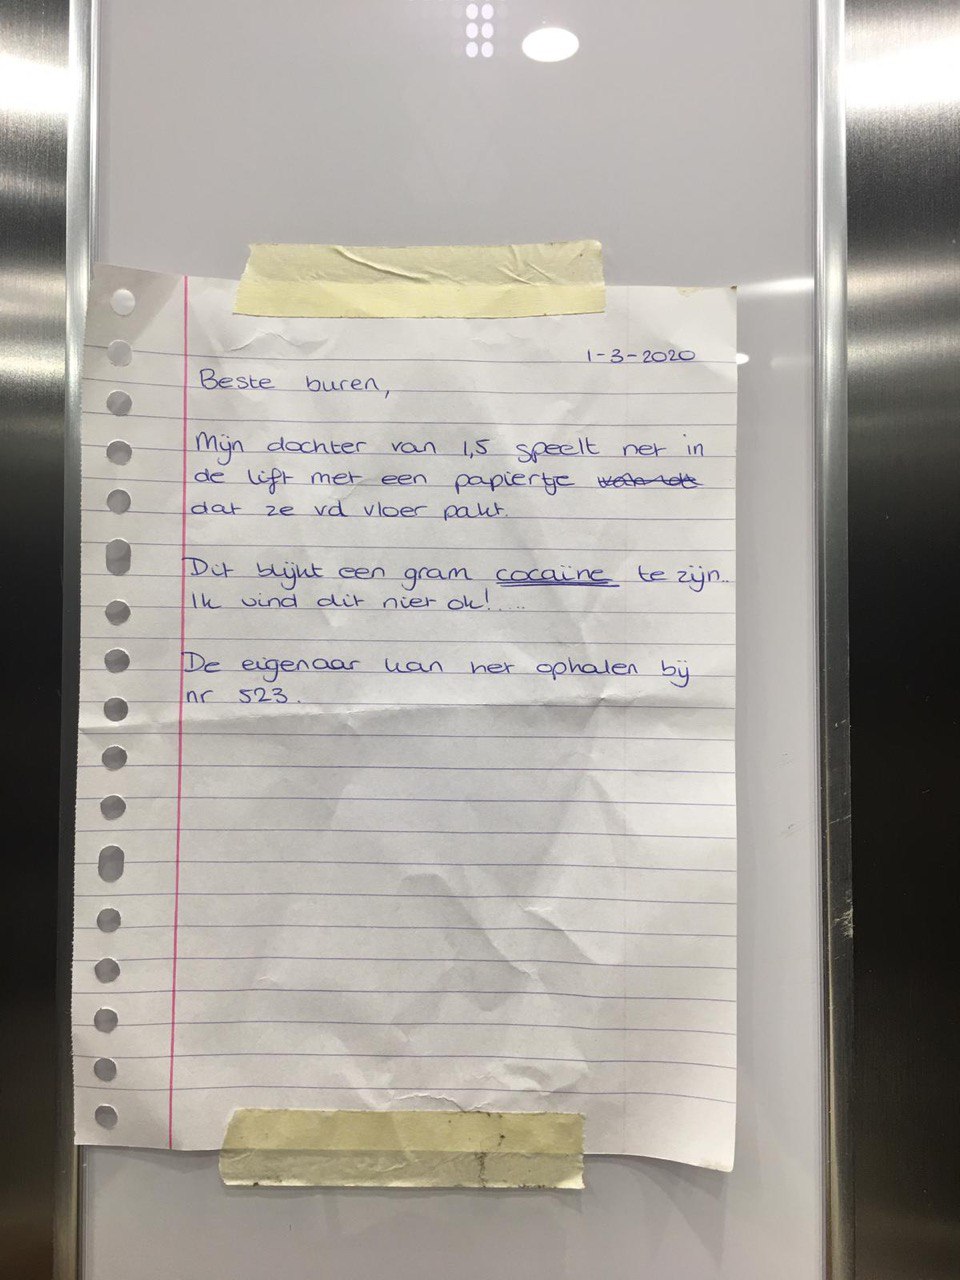 1-3-2020
Beste buren,
Mijn dochter van 1,5 speelt net in
de lift met een papiertje
dat ze vd vloer pakt.
Dit blijkt een gram cocaïne te zijn..
Ik vind dit niet ok!.....
De eigenaar kan het ophalen bij
nr 523.